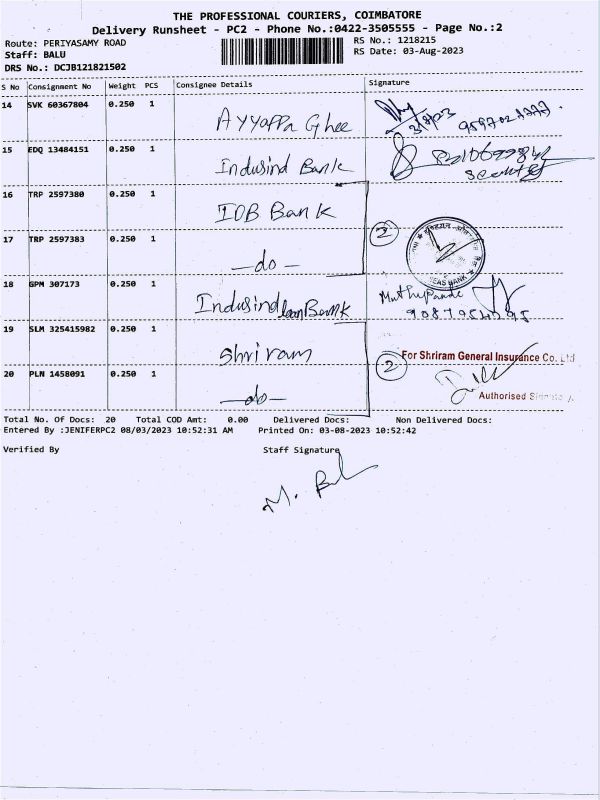 THE PROFESSIONAL COURIERS, COIMBATORE
Delivery Runsheet - PC2 - Phone No.:0422-3505555 - Page No.:2
Route: PERIYASAMY ROAD
RS No.: 1218215
Staff: BALU
RS Date: 03-Aug-2023
DRS No.: DCJB121821502
S No Consignment No Weight PCS Consignee Details Signature
14 SVK 60367804 0.250 1
Ayyappa Ghee
3/8/23
15 EDQ 13484151 0.250 1
Indusind Bank
16 TRP 2597380 0.250 1
IOB Bank
2
17 TRP 2597383 0.250 1
—do—
SEAS BANK
18 GPM 307173 0.250 1
Indusind loan Bank
19 SLM 325415982 0.250 1
Shriram
2
For Shriram General Insurance Co. Ltd
20 PLN 1458091 0.250 1
—do—
Authorised
Total No. Of Docs: 20 Total COD Amt: 0.00 Delivered Docs: Non Delivered Docs:
Entered By :JENIFERPC2 08/03/2023 10:52:31 AM Printed On: 03-08-2023 10:52:42
Verified By Staff Signature
M. Bal